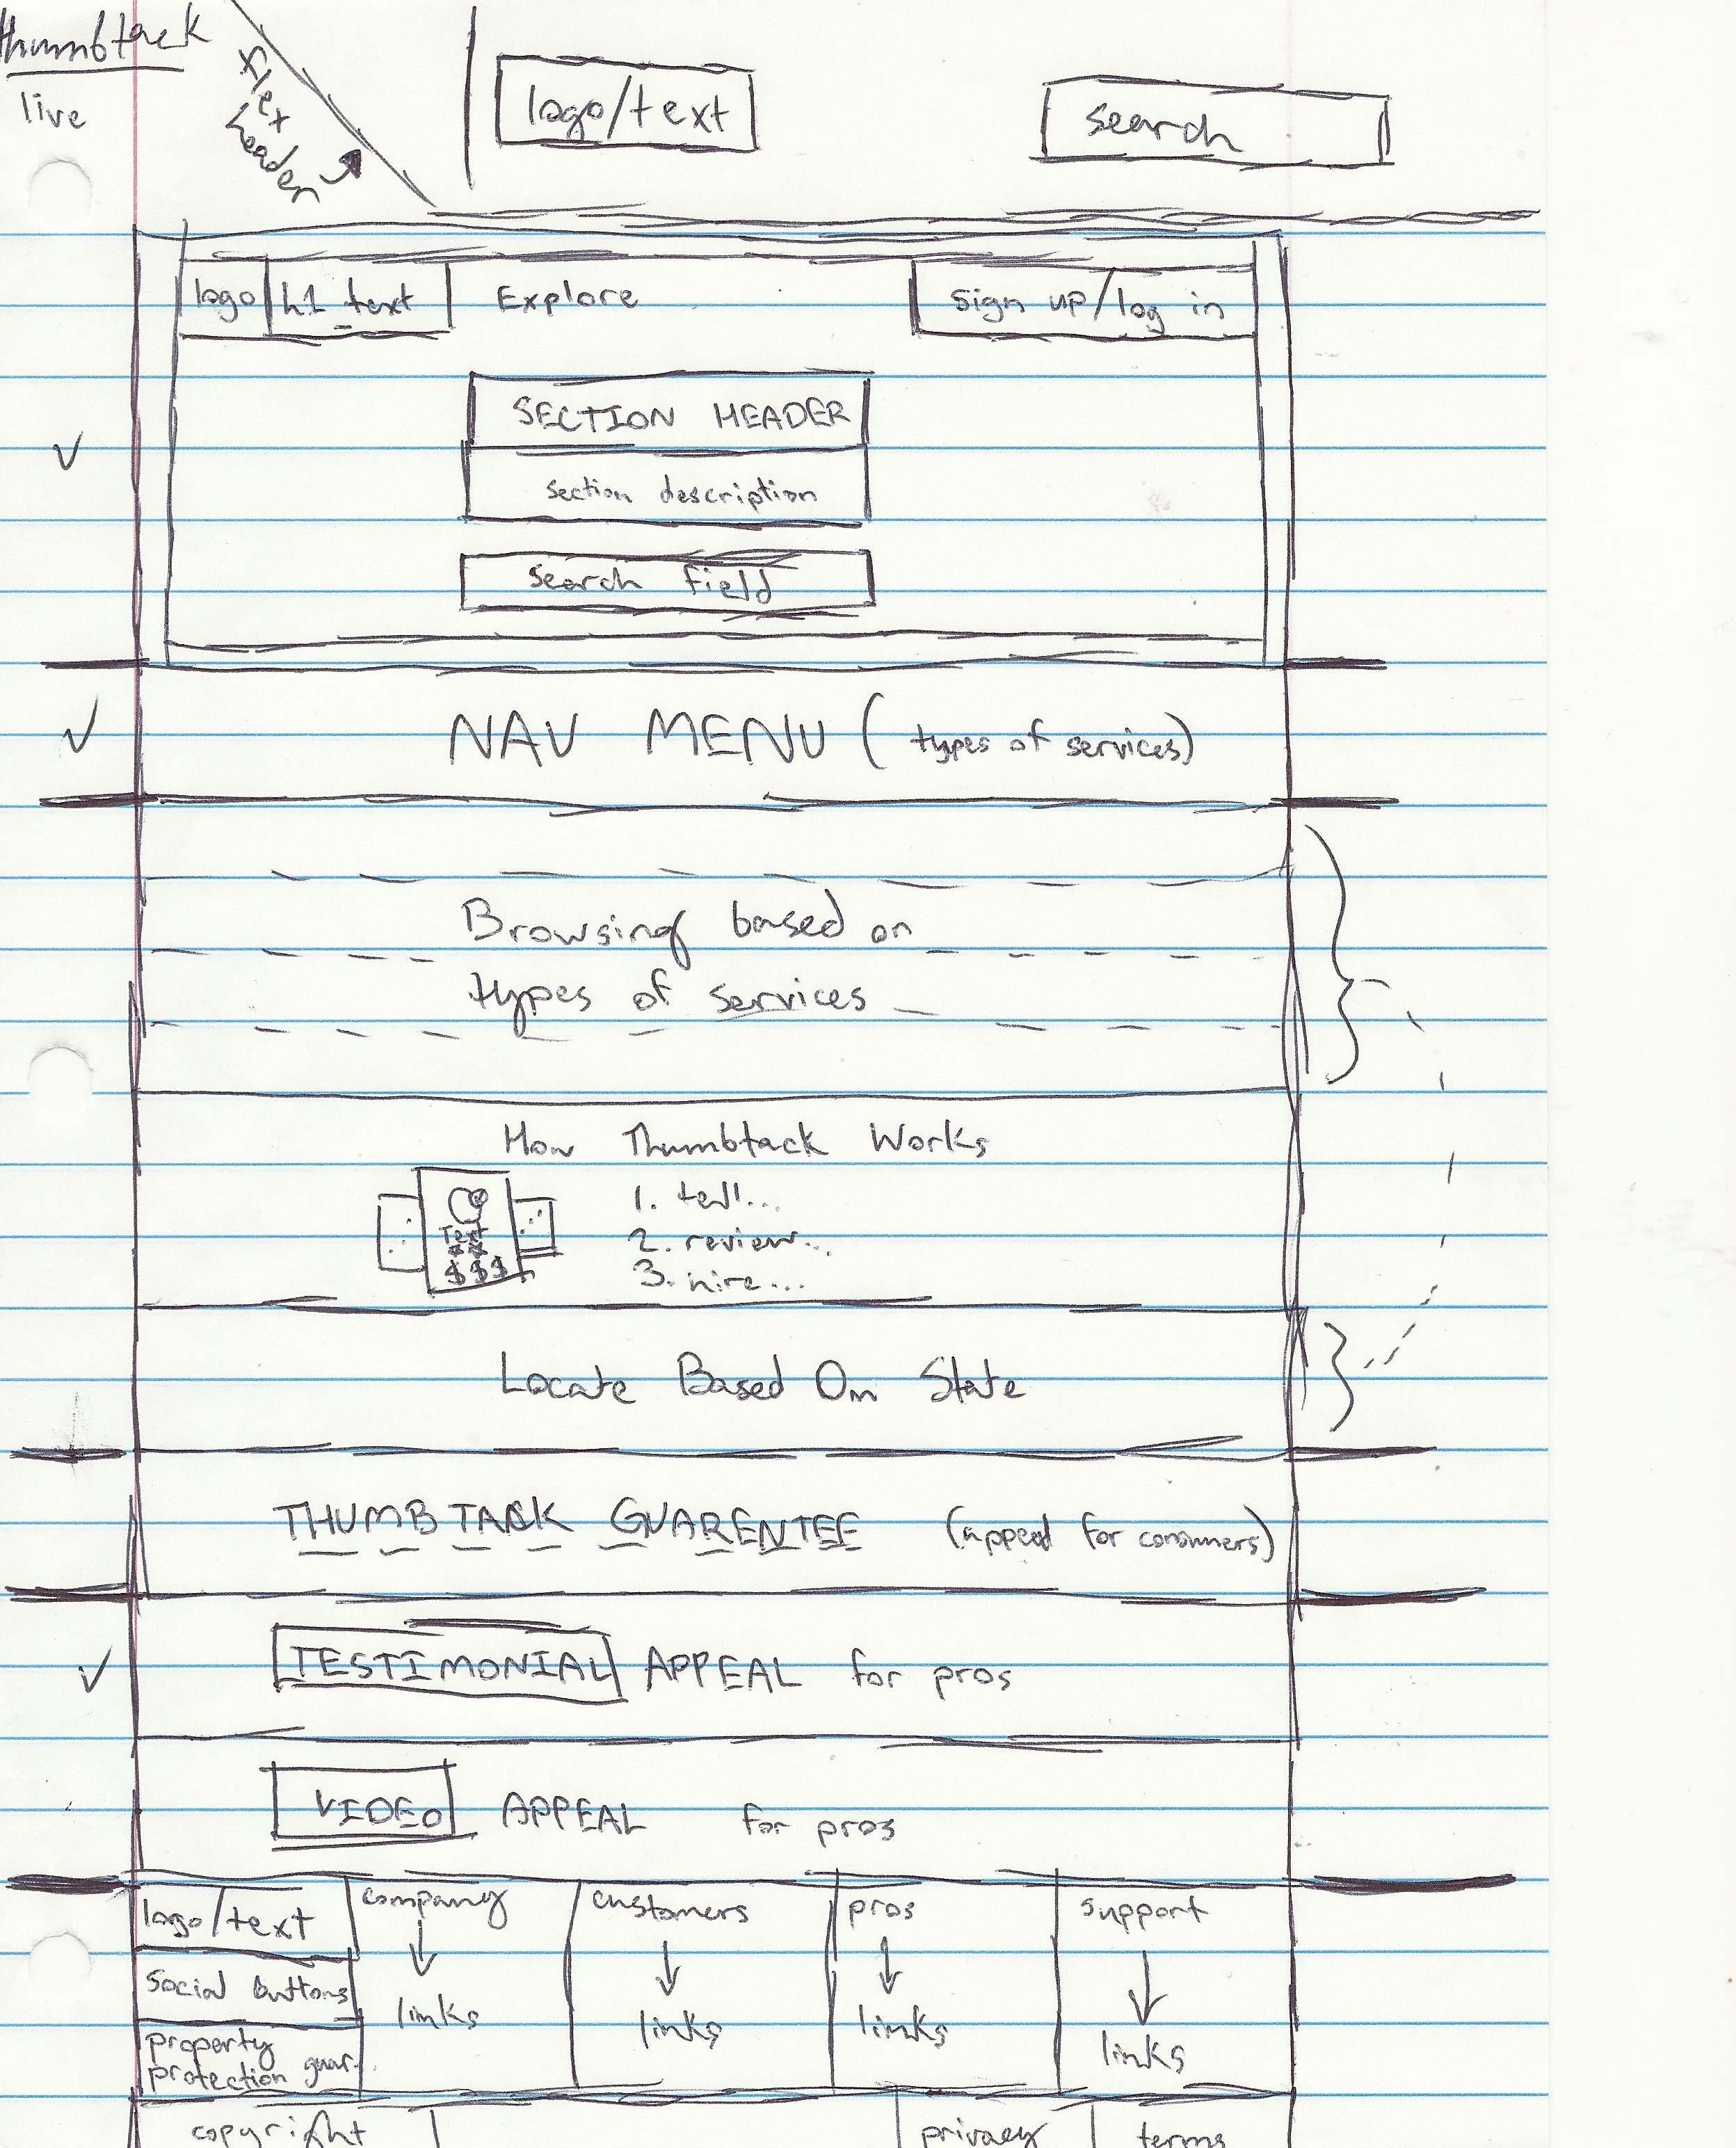 thumbtack
live
flex
header
logo/text
search
logo h1 text Explore sign up/log in
SECTION HEADER
section description
search field
NAV MENU (types of services)
Browsing based on
types of services
How Thumbtack Works
Text
$$$
1. tell...
2. review...
3. hire...
Locate Based On State
THUMBTACK GUARENTEE (appeal for consumers)
TESTIMONIAL APPEAL for pros
VIDEO APPEAL for pros
logo/text
social buttons
property
protection guar.
company
links
customers
links
pros
links
support
links
copyright privacy terms